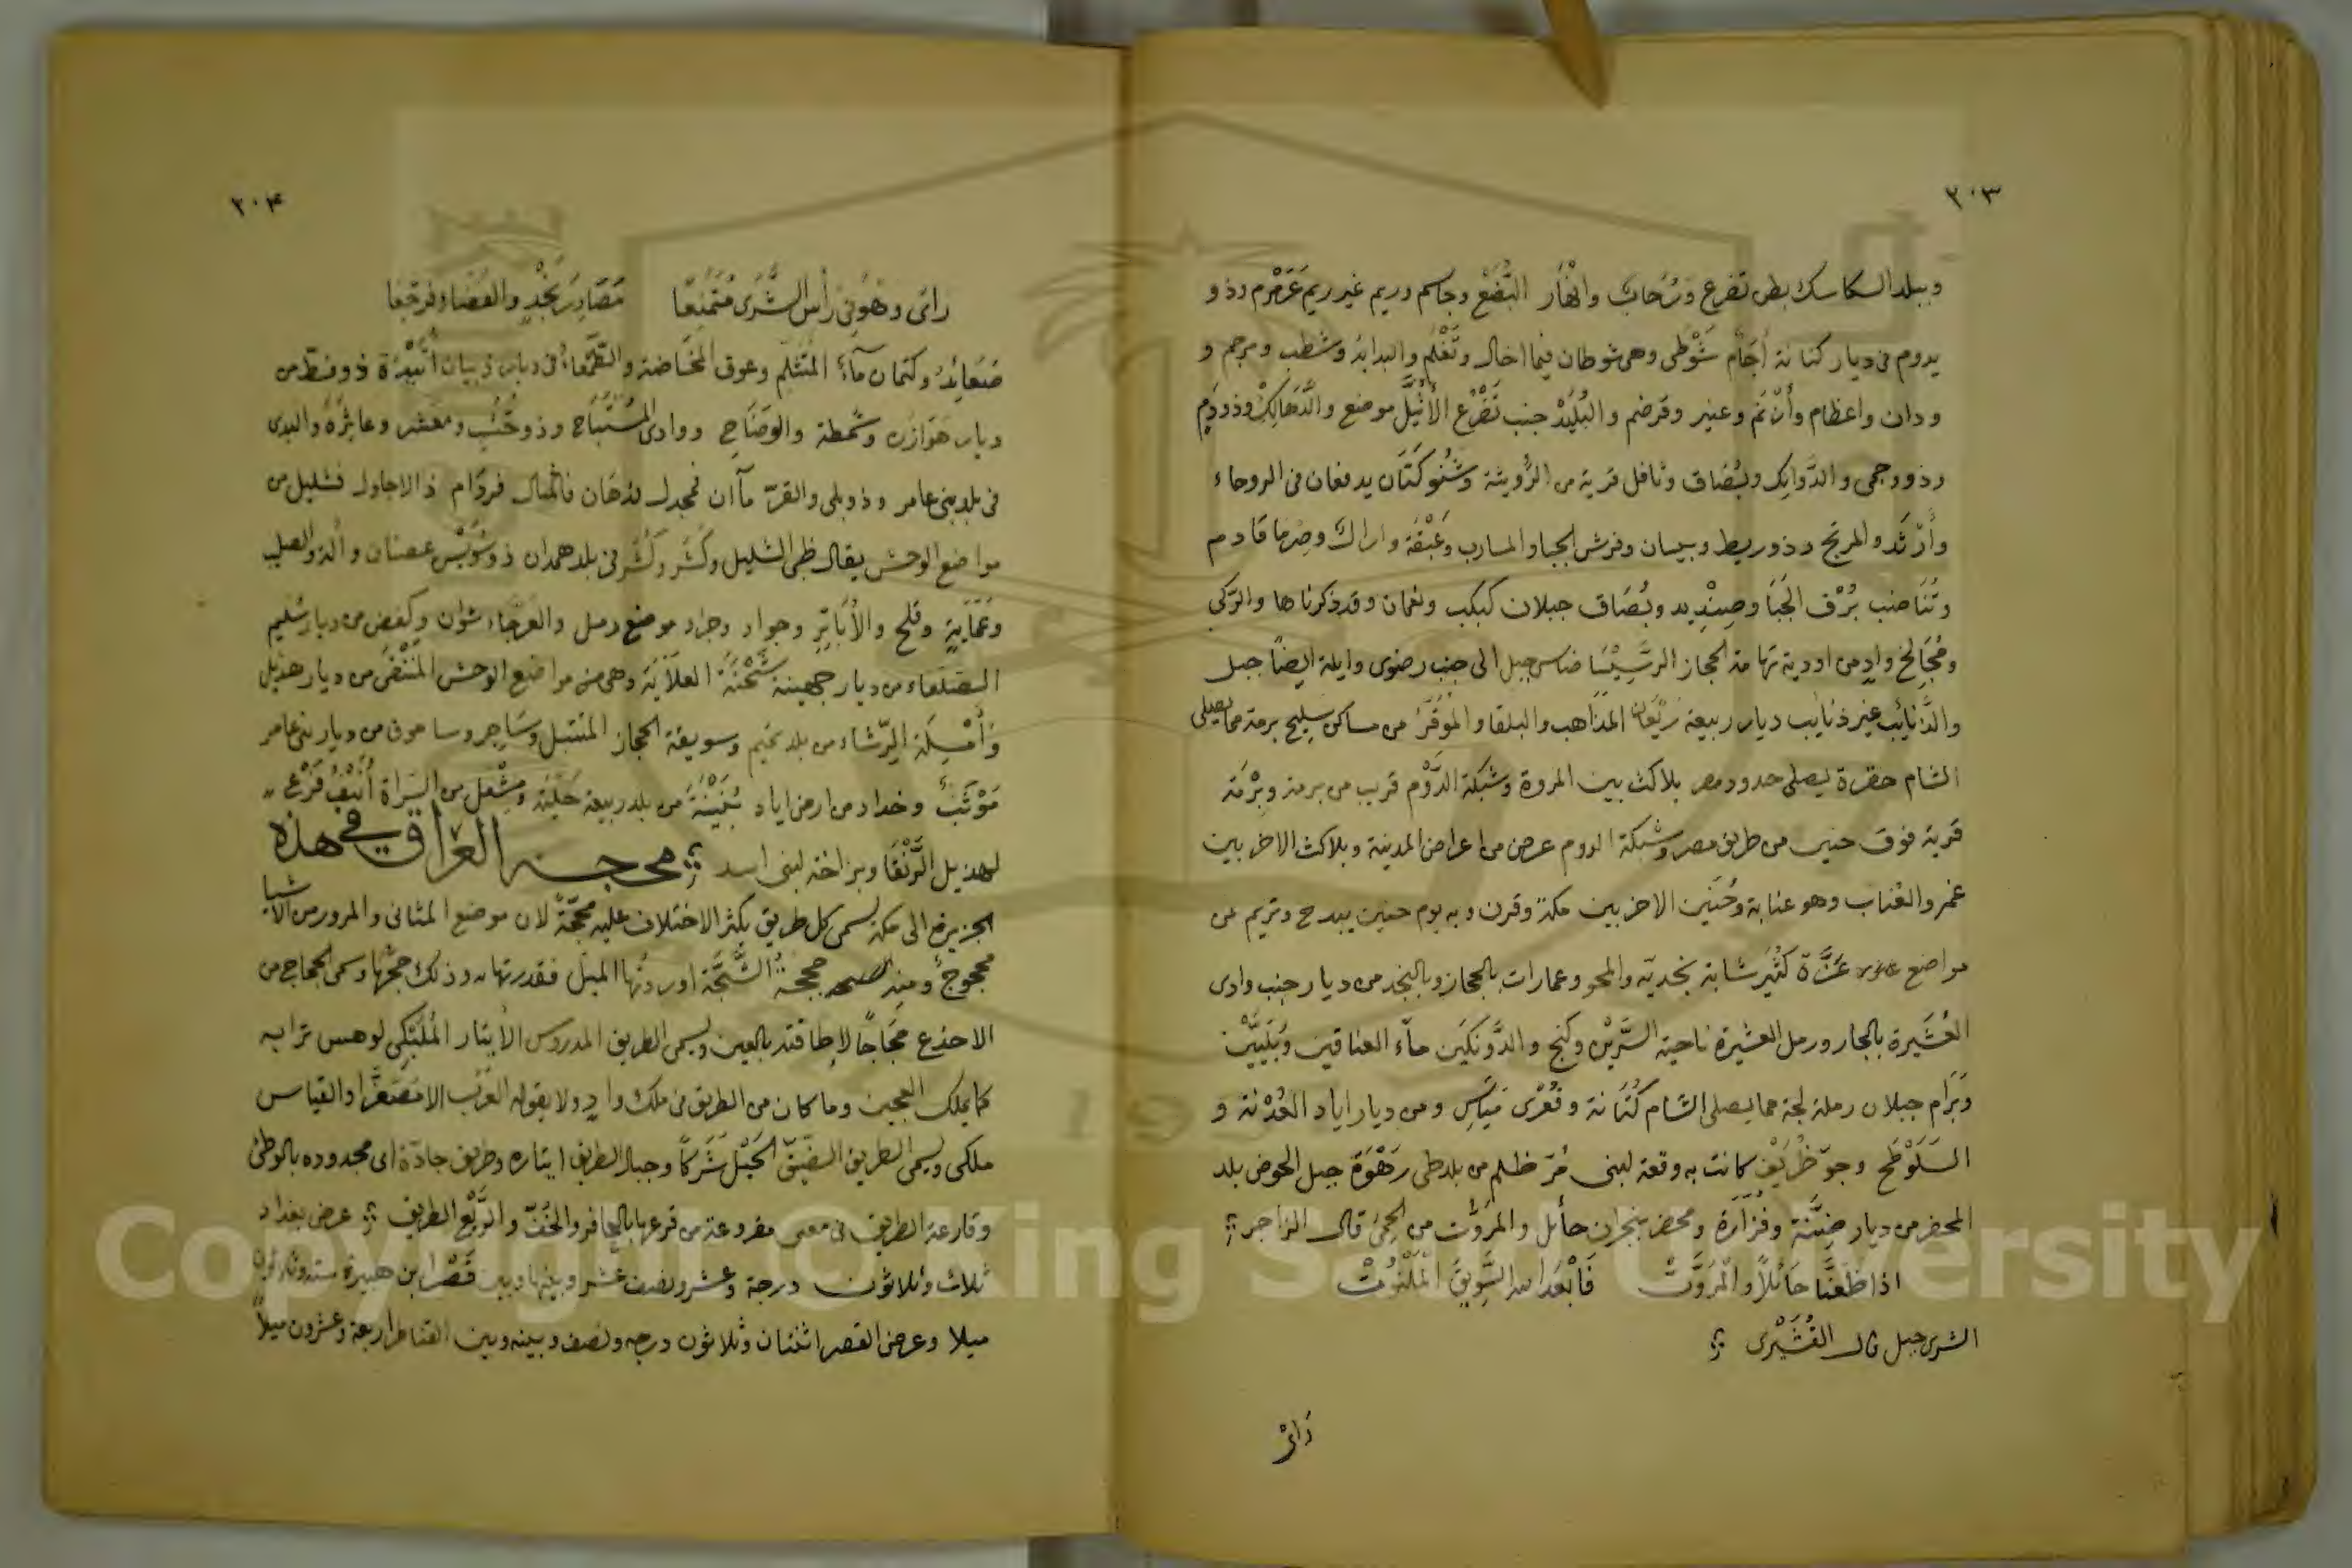 ٢٠٣
وببلد السكاسك بطن تضرع ورُحاب وانْهَار البُضَعْ وجاسم وريم غير ريم عَرَمْرَم وذو و
يدوم فى ديار كنانة أجَام شَوْطَى وهى شوطان فيما اخال وتَعْلم والبدابد وشطب ومرجم و
ودان واعظام وأَنْ نم وعنبر وقرضم والبُلَيْد جنب تَضْرُع الأُثَيْل موضع والدَّهَالِكْ وذو دَم
وذو وجمى والدَّوانِك وبُضَاق وثافل قرية من الرُّويثة وشَنُوكَتَان يدفعان فى الروحاء
وأَرْثَد والمريخ وذو ريط وبيسان وفرش الجبا والمسارب وعَبْقة واراك وصِرْما قادم
وتُنَاضب بُرْق الجَبَا وصِنْدِيد وبُصَاق جبلان كبكب ونعمان وقد ذكرناها والركى
ومُجَالِخ وادٍ من اودية تهامة الحجاز الرسيسا ضاس جبل الى جنب رضوى وايلة ايضًا جبل
والذَّنايب غير ذنايب ديار ربيعة رَيْعَان المذاهب والبلقا والموَقَّر من مساكن سليح برمة مما يصلى
الشام حقرة يصلى حدود مصر بلاكث بين المروة وشبكة الدَّوْم قريب من برمة وبِرْمَة
قرية فوق خيبر من طريق مصر وشبكة الدوم عرض من اعراض المدينة وبلاكث الاخر بين
غمر والعُناب وهو عنابة وحُنَين الاخر بين مكة وقرن وبه يوم حنين يبدح وتريم من
مواضع عَزَّة كُثَيِّر شابة نجدية والمحو وعمارات بالحجاز وبالنجد من ديار جنب وادى
العُشَيرة بالجار ورمل العشيرة ناحية السَّرَّين وكنج والدَّونكَين ماء العناقين وبُلَيَيْن
وبَرَام جبلان رملة لجة مما يصلى الشام كُتَانة وفُعْرى مَيَاسِر ومن ديار اياد العُدْنة و
السَلَوْطَح وجوّ ظُرَيْف كانت به وقعة لبنى مُرّ ظلم من بلد طى رَهْوَة جبل الحوض بلد
المحضر من ديار ضِنَّة وفَزَارَة ومحضر بنجران حائل والمرُّوت من الحِمَى قال الراجز
اذا ظَعَنَّا حَائلاً والمرَوَّتْ فَأبْعَد الله السَّوِيقَ المَلْتُوتْ
الشرى جبل قال القُشَيْرى
رَأى
٢٠٤
رائى وهوُ فِى رأس الشَّرَى مُتَمَنِّعًا مَصَادِرَ نَجْدٍ والفضاء فرجعا
ضَعائِدُ وكتمان ماءٌ المتثلم وعوق المخاضة والطَّمعاء فى ديار ذبيان أُبَيْدة ذو فنط من
ديار هَوَازن وشمطة والوضاح ووادى المستباح وذو حُبُب ومعشر وعاثرة والبدى
فى بلد بنى عامر وذو بلى والقرّ ماآن فمجدل فدهَان فاثمال فردّام ذ الاجاول فشليل من
مواضع الوحش يقال ظبى الشليل وكُشَر وكَشَر فى بلد همدان ذو سُوَيْس عصنان والد والصليب
وعَمَايةِ وفلح والأُبَاتِرِ وجواد وجراد موضع رمل والعرجاء شوان وكفض من ديار سُليم
الصلعاء من ديار جهينة شَحْنة العلاية وهى من مواضع الوحش المَنْتَضَى من ديار هذيل
وأُمَيلة الرّشاء من بلد تميم وسويقة الحجاز المنتبل وسَاجِر وساهوق من ديار بنى عامر
مَوْثَب وخداد من ارض اياد بُنَيْنَة من بلد ربيعة حَلْيَة ومشْعَل من السراة أُنَيْف فَرْع
لهذيل الرَّنْقا وبزاخة لبنى اسد محجة العراق فى هذه
الجزيرة الى مكة يسمى كل طريق يكثر الاختلاف عليه محجّةً لان موضع المثانى والمرور من الاشيا
محجوجٌ ومنه محجةُ الشَّجَّة اوردتُها الميل فقدرتها به وذلك حجُّها وسمى الحجاج من
الاحذع حَجَاجًا لإطاقته بالعين ويسمى الطريق المدروس الأيثار المُلَّتِكى لوهس ترابه
كما يملك العجين وما كان من الطريق فى ملك وادٍ ولا يقوله العَرَب الا مُصَغَّرا والقياس
ملكى ويسمى الطريق الضيّق الحَبْل شَرَكاً وحبال الطريق ايثاره وطريق جادّة اى مجدوده بالوطئ
وقارعة الطريق فى معنى مقروعة من قرعها بالحافر والخُفّ والرَّبْع الطريق عرض بغداد
ثلاث وثلاثون درجة وعشر ونصف عشر وبينها وبين قَصْر ابن هبيرة ستة وثلثون
ميلا وعرض القصر اثنتان وثلاثون درجه ونصف وبينه وبين القناطر اربعة وعشرون ميلاً
Copyright © King Saud University